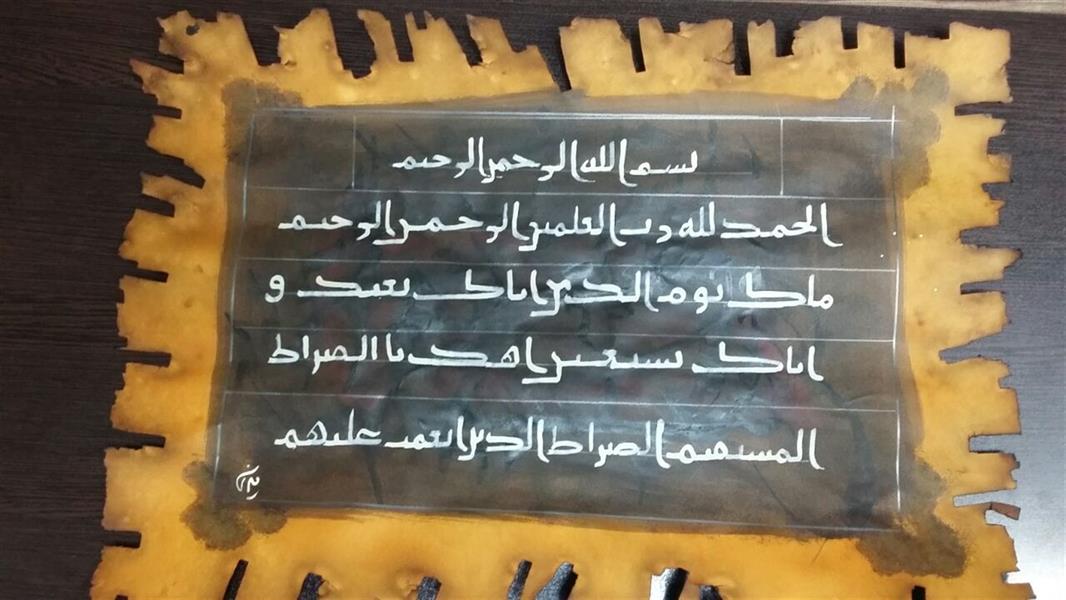 بسم الله الرحمن الرحيم
الحمد لله رب العلمين الرحمن الرحيم
ملك يوم الدين اياك نعبد و
اياك نستعين اهدنا الصراط
المستقيم الصراط الذين انعمت عليهم